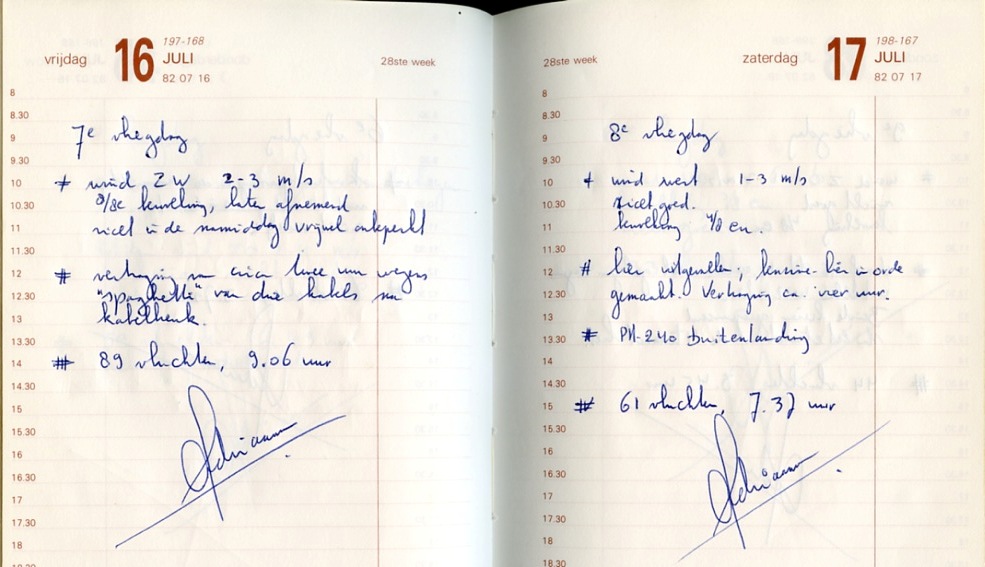 vrijdag 16 197-168
JULI
82 07 16
28ste week
8
8.30
9
9.30
10
10.30
11
11.30
12
12.30
13
13.30
14
14.30
15
15.30
16
16.30
17
17.30
18
7e vliegdag
# wind ZW 2-3 m/s
/8e bewolking, later afnemend
zicht in de namiddag vrijwel onbeperkt
# vertraging van circa twee uur wegens
"spaghetti" van drie kabels na
kabelbreuk.
# 89 vluchten, 9.06 uur
Adriaan
28ste week
zaterdag 17 198-167
JULI
82 07 17
8
8.30
9
9.30
10
10.30
11
11.30
12
12.30
13
13.30
14
14.30
15
15.30
16
16.30
17
17.30
18
18.30
8e vliegdag
# wind west 1-3 m/s
zicht goed.
bewolking /8 cu.
# lier uitgevallen; benzine-lier in orde
gemaakt. Vertraging ca. vier uur.
# PH-240 buitenlanding
# 61 vluchten, 7.37 uur
Adriaan